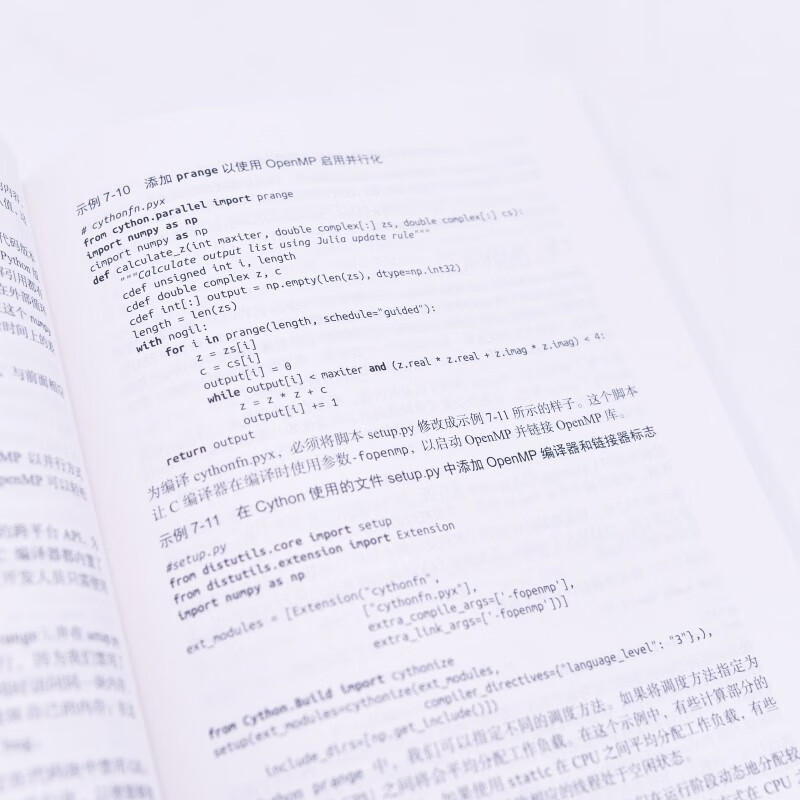 示例 7-10 添加 prange 以使用 OpenMP 启用并行化
# cythonfn.pyx
from cython.parallel import prange
import numpy as np
cimport numpy as np
def calculate_z(int maxiter, double complex[:] zs, double complex[:] cs):
"""Calculate output list using Julia update rule"""
cdef unsigned int i, length
cdef double complex z, c
cdef int[:] output = np.empty(len(zs), dtype=np.int32)
length = len(zs)
with nogil:
for i in prange(length, schedule="guided"):
z = zs[i]
c = cs[i]
output[i] = 0
while output[i] < maxiter and (z.real * z.real + z.imag * z.imag) < 4:
z = z * z + c
output[i] += 1
return output
为编译 cythonfn.pyx，必须将脚本 setup.py 修改成示例 7-11 所示的样子。这个脚本
让 C 编译器在编译时使用参数-fopenmp，以启动 OpenMP 并链接 OpenMP 库。
示例 7-11 在 Cython 使用的文件 setup.py 中添加 OpenMP 编译器和链接器标志
#setup.py
from distutils.core import setup
from distutils.extension import Extension
import numpy as np
ext_modules = [Extension("cythonfn",
["cythonfn.pyx"],
extra_compile_args=['-fopenmp'],
extra_link_args=['-fopenmp'])]
from Cython.Build import cythonize
setup(ext_modules=cythonize(ext_modules,
compiler_directives={"language_level": "3"},),
include_dirs=[np.get_include()])
prange 中，我们可以指定不同的调度方法。如果将调度方法指定为
CPU 之间将会平均分配工作负载。在这个示例中，有些计算部分的
如果使用 static 在 CPU 之间平均分配工作负载，有些
相应的线程处于空闲状态。
在运行阶段动态地分配较